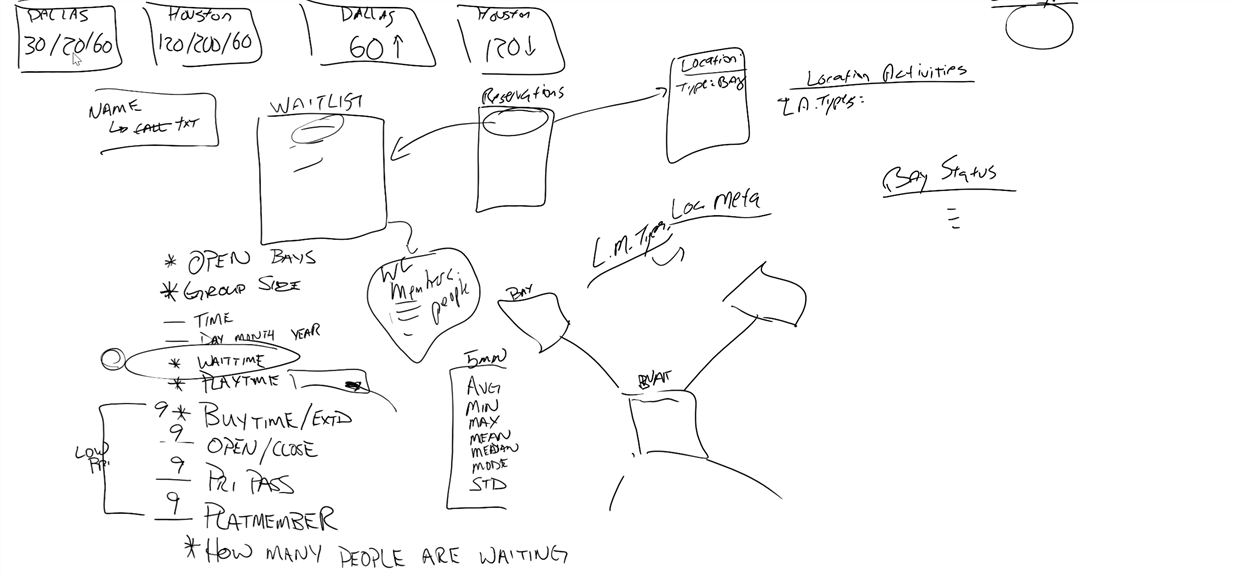 DALLAS
30/20/60
Houston
120/200/60
DALLAS
60↑
Houston
120↓
NAME
↳ CALL TXT
WAITLIST
Reservations
Location:
Type:BAY
Location Activities
L.A. Types:
BAY Status
Loc Meta
L.M. Types
WL
Members:
people
* OPEN BAYS
* GROUP SIZE
— TIME
— DAY MONTH YEAR
* WAITTIME
* PLAYTIME
LOW
PRI
9 * BUYTIME/EXTD
9 — OPEN/CLOSE
9 — PRI PASS
9 — PLATMEMBER
* HOW MANY PEOPLE ARE WAITING
5MIN
AVG
MIN
MAX
MEAN
MEDIAN
MODE
STD
BAY